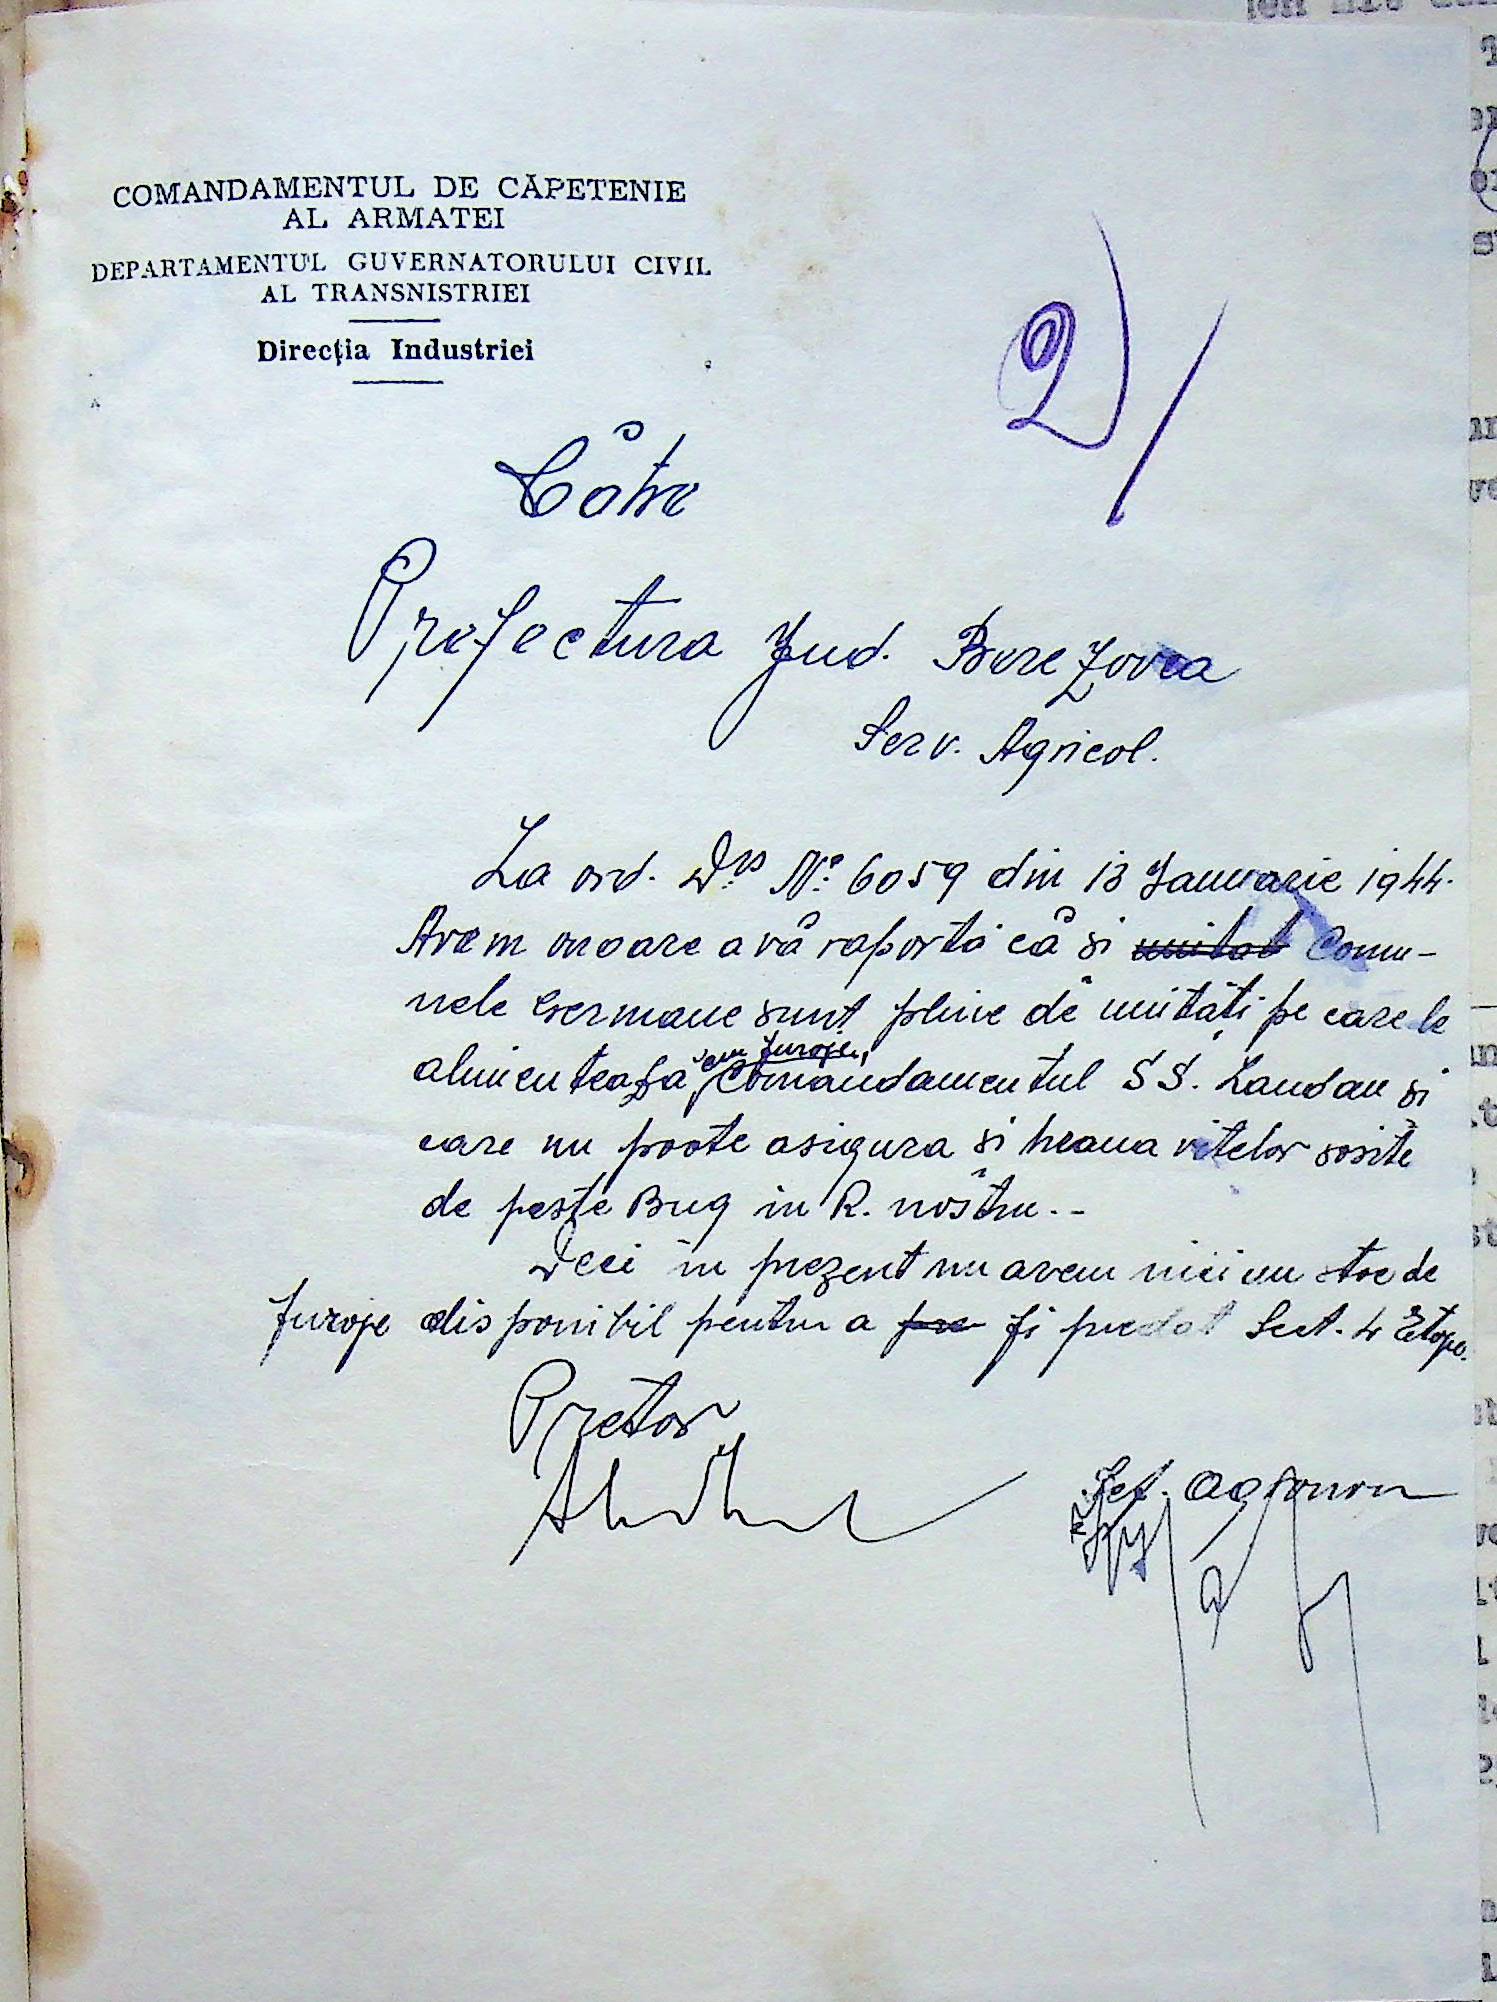 COMANDAMENTUL DE CĂPETENIE
AL ARMATEI
DEPARTAMENTUL GUVERNATORULUI CIVIL
AL TRANSNISTRIEI
Direcția Industriei
2)
Către
Prefectura Jud. Berezovca
Serv. Agricol.
La ord. Dvs No. 6059 din 13 Januarie 1944.
Avem onoare a vă raportă că și unitat Comu-
nele Germane sunt pline de unități pe care le
alimentează cu furoje, Comandamentul SS. Landau și
care nu poate asigura și hrana vitelor sosite
de peste Bug in R. nostru.-
Deci in prezent nu avem nici un stoc de
furoje disponibil pentru a pre fi predat Sect. 4 Etape.
Pretor
Șef. Agronom